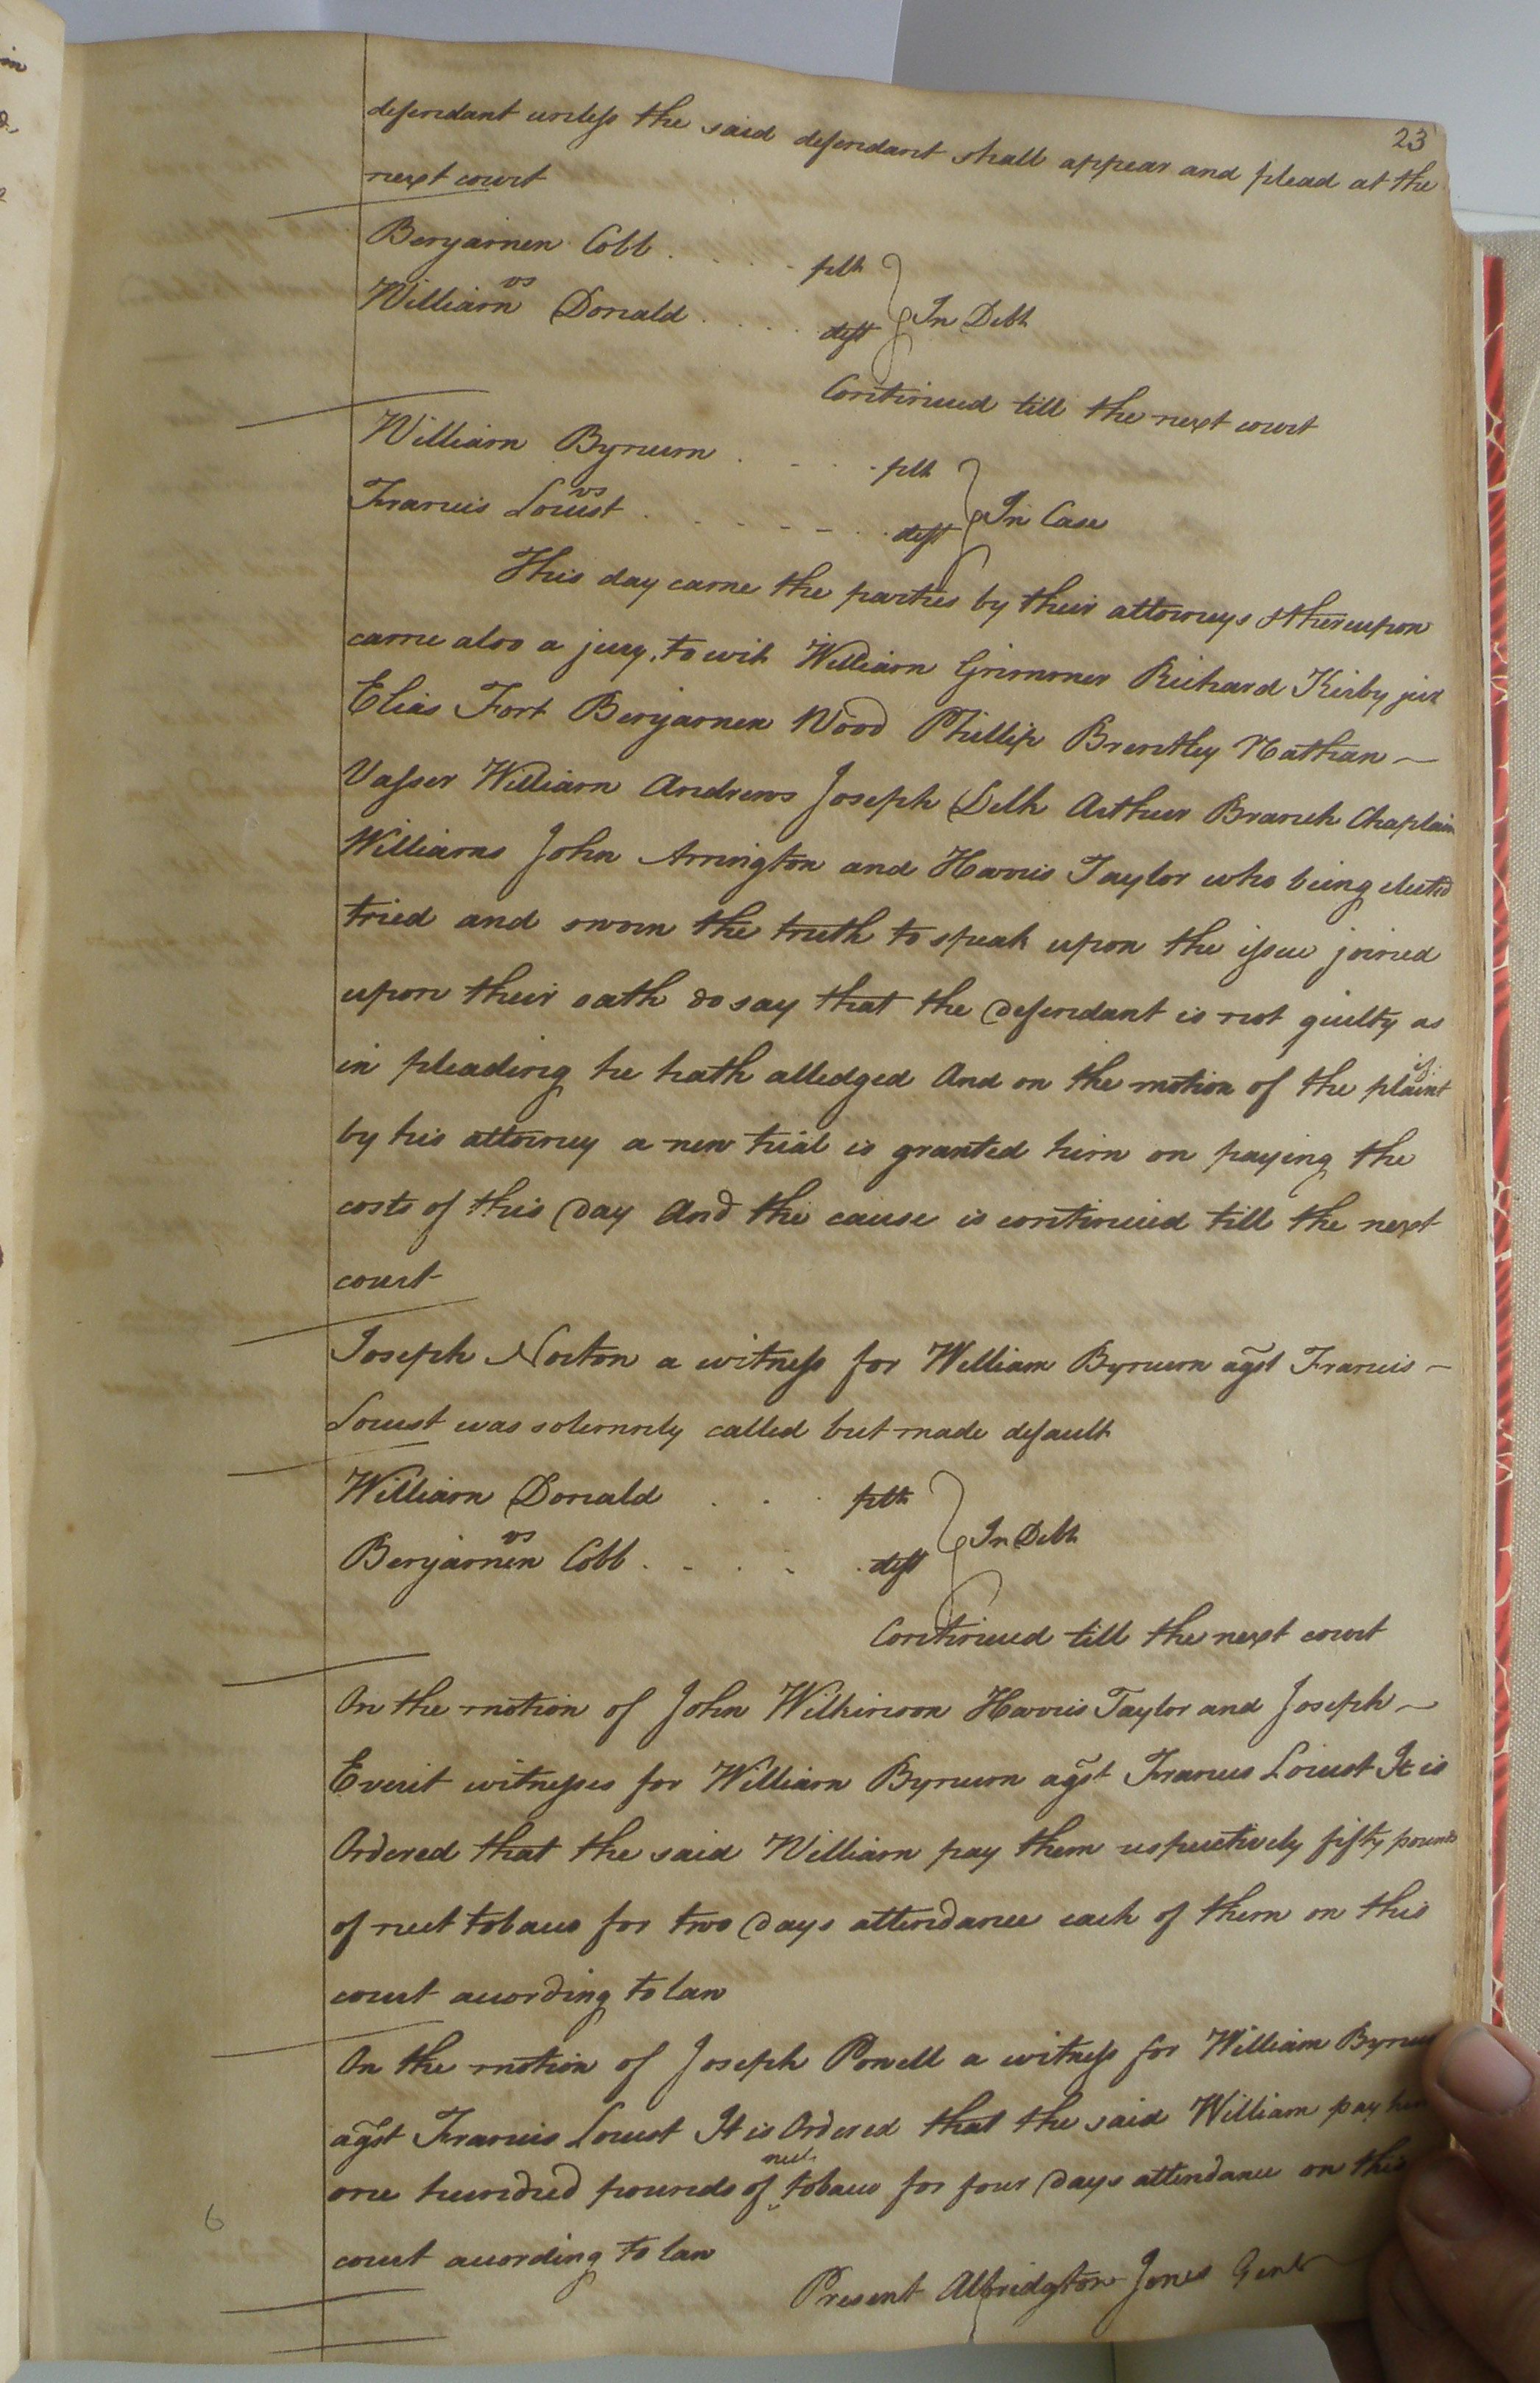 23
defendant unless the said defendant shall appear and plead at the
next court
Benjamen Cobb . . . . . plt
vs
William Donald . . . . . deft } In Debt
Continued till the next court
William Bynum . . . . plt
vs
Francis Locust . . . . . . deft } In Case
This day came the parties by their attorneys & thereupon
came also a jury, to wit William Grimmer Richard Kirby jur
Elias Fort Benjamen Wood Phillip Brentley Nathan
Vasser William Andrews Joseph Delk Arthur Branch Chaplain
Williams John Arrington and Harris Taylor who being elected
tried and sworn the truth to speak upon the issue joined
upon their oath do say that the defendant is not guilty as
in pleading he hath alledged And on the motion of the plaint if.
by his attorney a new trial is granted him on paying the
costs of this day And the cause is continued till the next
court
Joseph Norton a witness for William Bynum agst Francis
Locust was solemnly called but made default
William Donald . . . plt
vs
Benjamen Cobb . . . . . deft } In Debt
Continued till the next court
On the motion of John Wilkinson Harris Taylor and Joseph
Everit witnesses for William Bynum agst Francis Locust It is
Ordered that the said William pay them respectively fifty pounds
of neet tobacco for two days attendance each of them on this
court according to law
On the motion of Joseph Powell a witness for William Bynum
agst Francis Locust It is Ordered that the said William pay him
one hundred pounds of neet tobacco for four days attendance on this
6
court according to law
Present Albridgton Jones Gent